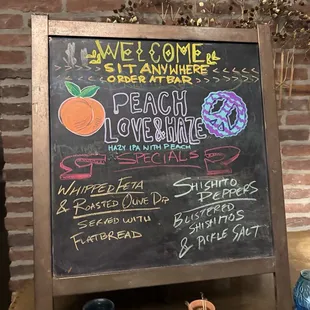 WELCOME
SIT ANYWHERE
ORDER AT BAR
PEACH
LOVE & HAZE
HAZY IPA WITH PEACH
SPECIALS
WHIPPED FETA
& ROASTED OLIVE DIP
SERVED WITH
FLATBREAD
SHISHITO
PEPPERS
BLISTERED
SHISHITOS
& PICKLE SALT